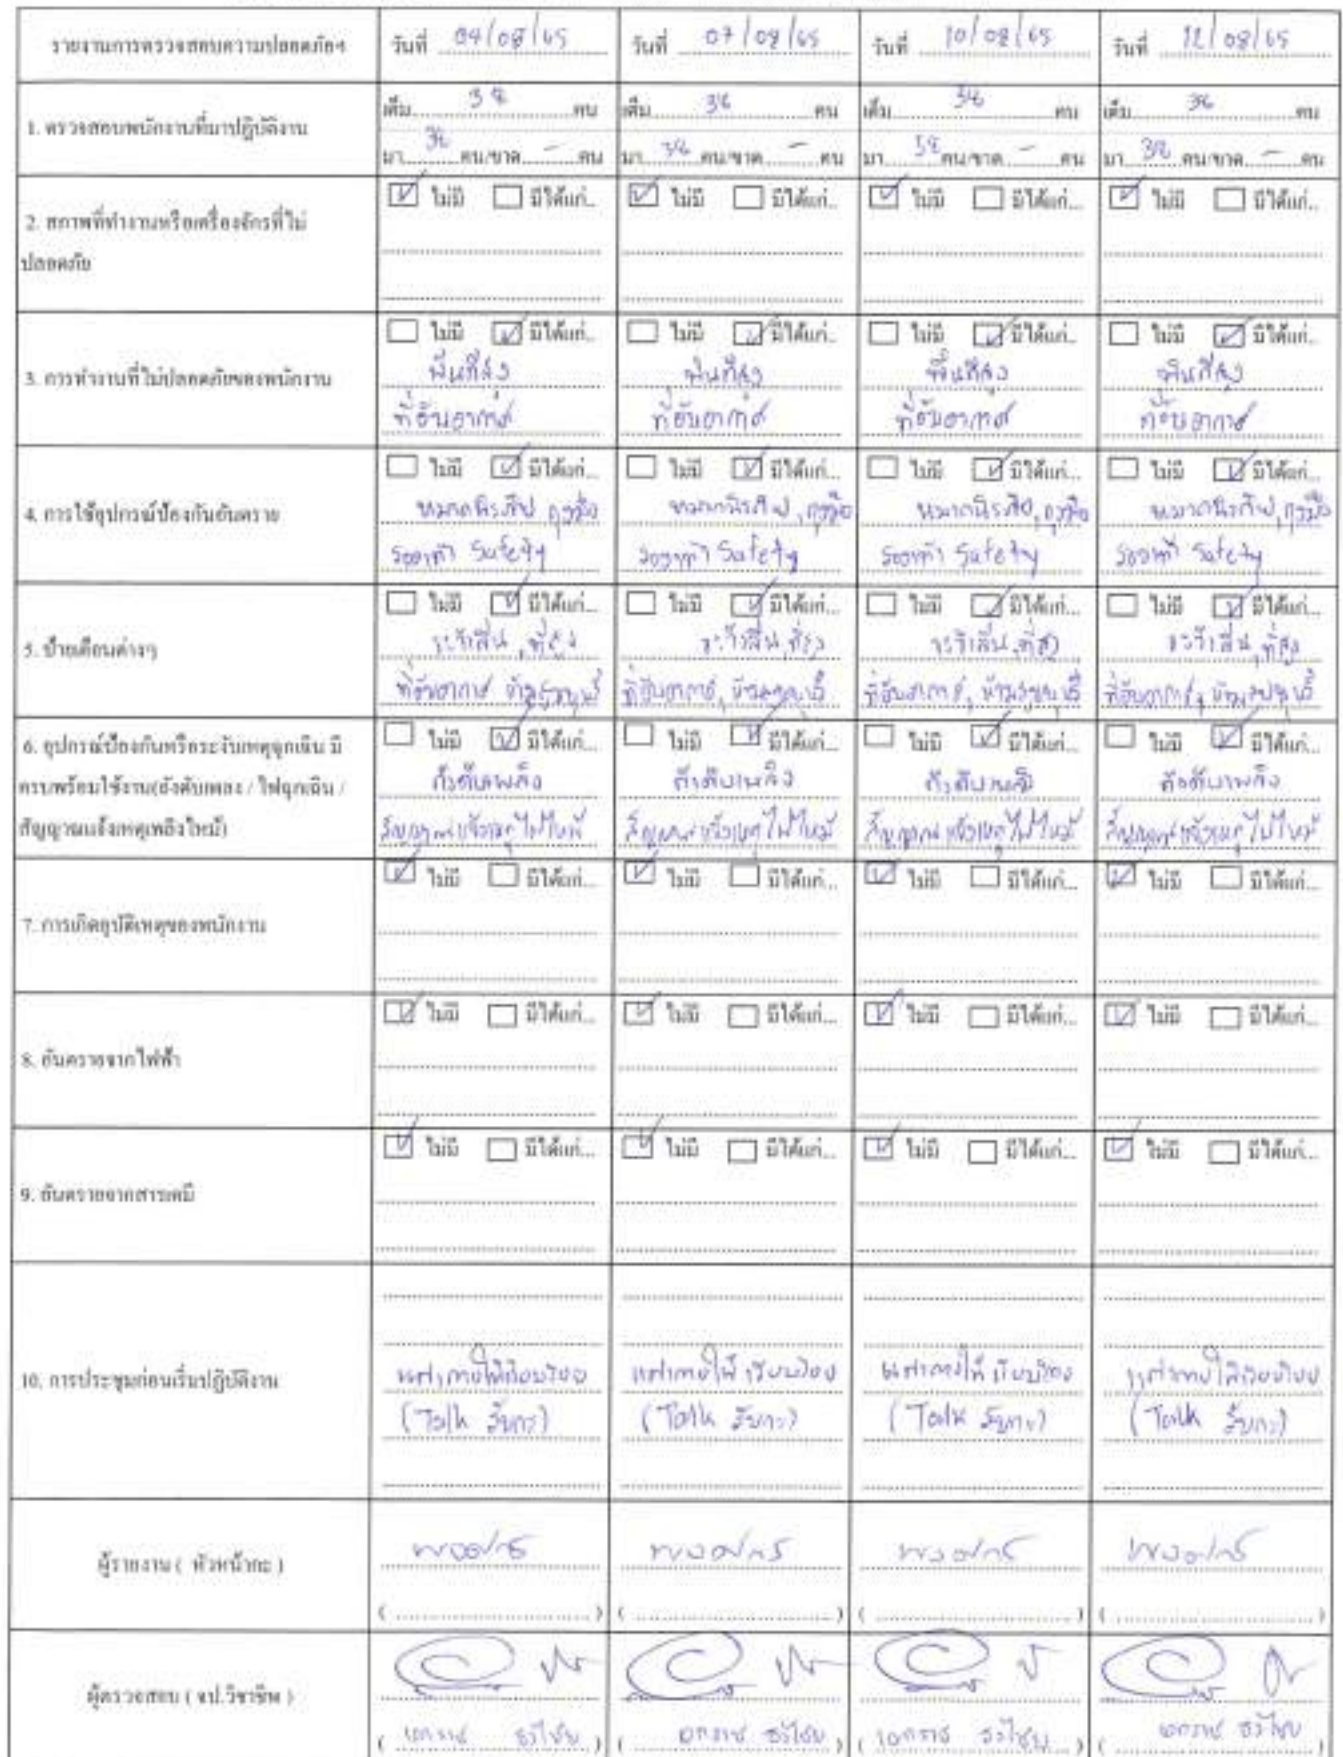 รายงานการตรวจสอบความปลอดภัยฯ
วันที่ 04/08/65
วันที่ 07/08/65
วันที่ 10/08/65
วันที่ 12/08/65
1. ตรวจสอบพนักงานที่มาปฏิบัติงาน
เต็ม คน
เต็ม คน
เต็ม คน
เต็ม คน
มา คน/ขาด - คน
มา คน/ขาด - คน
มา คน/ขาด - คน
มา คน/ขาด - คน
2. สภาพที่ทำงานหรือเครื่องจักรที่ไม่
ปลอดภัย
ไม่มี มีได้แก่...
ไม่มี มีได้แก่...
ไม่มี มีได้แก่...
ไม่มี มีได้แก่...
3. การทำงานที่ไม่ปลอดภัยของพนักงาน
ไม่มี มีได้แก่...
พื้นที่สูง
ที่อับอากาศ
ไม่มี มีได้แก่...
พื้นที่สูง
ที่อับอากาศ
ไม่มี มีได้แก่...
พื้นที่สูง
ที่อับอากาศ
ไม่มี มีได้แก่...
พื้นที่สูง
ที่อับอากาศ
4. การใช้อุปกรณ์ป้องกันอันตราย
ไม่มี มีได้แก่...
หมวกนิรภัย ถุงมือ
รองเท้า Safety
ไม่มี มีได้แก่...
หมวกนิรภัย, ถุงมือ
รองเท้า Safety
ไม่มี มีได้แก่...
หมวกนิรภัย, ถุงมือ
รองเท้า Safety
ไม่มี มีได้แก่...
หมวกนิรภัย, ถุงมือ
รองเท้า Safety
5. ป้ายเตือนต่างๆ
ไม่มี มีได้แก่...
ระวังลื่น, ที่สูง
ที่อับอากาศ ห้ามสูบบุหรี่
ไม่มี มีได้แก่...
ระวังลื่น, ที่สูง
ที่อับอากาศ, ห้ามสูบบุหรี่
ไม่มี มีได้แก่...
ระวังลื่น, ที่สูง
ที่อับอากาศ, ห้ามสูบบุหรี่
ไม่มี มีได้แก่...
ระวังลื่น, ที่สูง
ที่อับอากาศ, ห้ามสูบบุหรี่
6. อุปกรณ์ป้องกันหรือระงับเหตุฉุกเฉิน มี
ครบพร้อมใช้งาน(ถังดับเพลง / ไฟฉุกเฉิน /
สัญญาณแจ้งเหตุเพลิงไหม้)
ไม่มี มีได้แก่...
ถังดับเพลิง
สัญญาณแจ้งเหตุไฟไหม้
ไม่มี มีได้แก่...
ถังดับเพลิง
สัญญาณแจ้งเหตุไฟไหม้
ไม่มี มีได้แก่...
ถังดับเพลิง
สัญญาณแจ้งเหตุไฟไหม้
ไม่มี มีได้แก่...
ถังดับเพลิง
สัญญาณแจ้งเหตุไฟไหม้
7. การเกิดอุบัติเหตุของพนักงาน
ไม่มี มีได้แก่...
ไม่มี มีได้แก่...
ไม่มี มีได้แก่...
ไม่มี มีได้แก่...
8. อันตรายจากไฟฟ้า
ไม่มี มีได้แก่...
ไม่มี มีได้แก่...
ไม่มี มีได้แก่...
ไม่มี มีได้แก่...
9. อันตรายจากสารเคมี
ไม่มี มีได้แก่...
ไม่มี มีได้แก่...
ไม่มี มีได้แก่...
ไม่มี มีได้แก่...
10. การประชุมก่อนเริ่มปฏิบัติงาน
แต่งกายให้เรียบร้อย
(Talk รับกะ)
แต่งกายให้เรียบร้อย
(Talk รับกะ)
แต่งกายให้เรียบร้อย
(Talk รับกะ)
แต่งกายให้เรียบร้อย
(Talk รับกะ)
ผู้รายงาน ( หัวหน้ากะ )
พงศกร
พงศกร
พงศกร
พงศกร
ผู้ตรวจสอบ ( จป.วิชาชีพ )